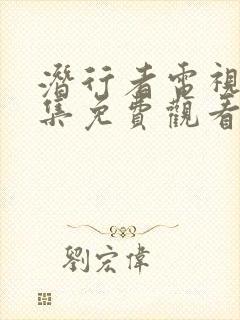 潛行者電視
集免費觀看
劉宏偉